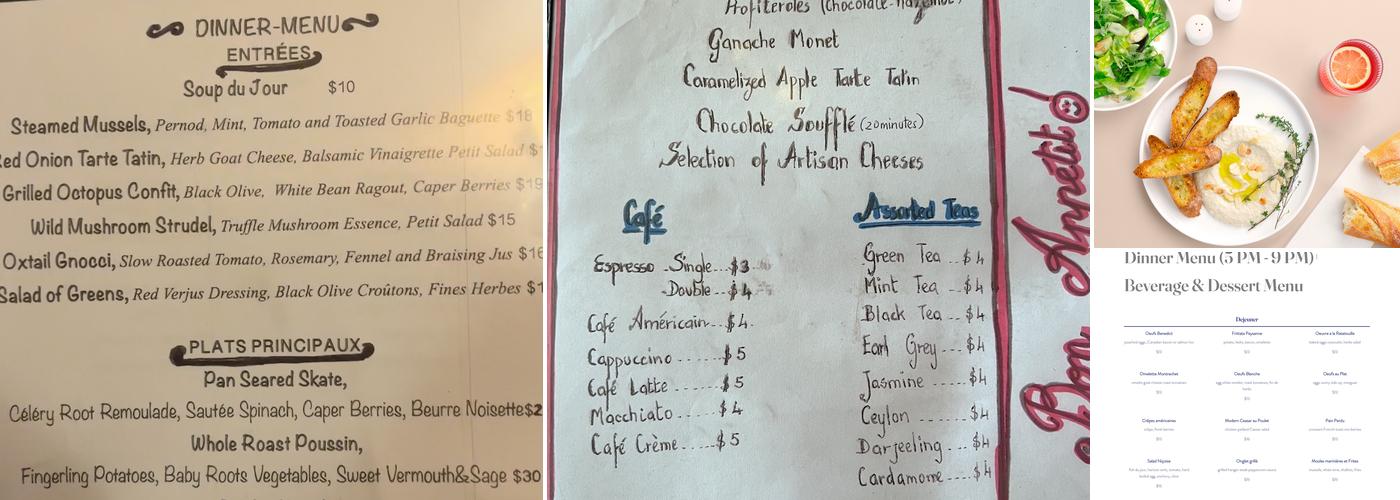 DINNER-MENU
ENTRÉES
Soup du Jour $10
Steamed Mussels, Pernod, Mint, Tomato and Toasted Garlic Baguette $18
Onion Tarte Tatin, Herb Goat Cheese, Balsamic Vinaigrette Petit Salad
Grilled Octopus Confit, Black Olive, White Bean Ragout, Caper Berries $19
Wild Mushroom Strudel, Truffle Mushroom Essence, Petit Salad $15
Oxtail Gnocci, Slow Roasted Tomato, Rosemary, Fennel and Braising Jus
Salad of Greens, Red Verjus Dressing, Black Olive Croûtons, Fines Herbes
PLATS PRINCIPAUX
Pan Seared Skate,
Céléry Root Remoulade, Sautée Spinach, Caper Berries, Beurre Noisette
Whole Roast Poussin,
Fingerling Potatoes, Baby Roots Vegetables, Sweet Vermouth&Sage $30
Profiteroles (Chocolate-hazelnut)
Ganache Monet
Caramelized Apple Tarte Tatin
Chocolate Soufflé (20minutes)
Selection of Artisan Cheeses
Café
Espresso Single...$3
Double...$4
Café Américain...$4
Cappuccino......$5
Café Latte.....$5
Macchiato.....$4
Café Crème....$5
Assorted Teas
Green Tea...$4
Mint Tea...$4
Black Tea...$4
Earl Grey...$4
Jasmine....$4
Ceylon....$4
Darjeeling...$4
Cardamome...$4
Bon Appétit
Dinner Menu (5 PM - 9 PM)
Beverage & Dessert Menu
Dejeuner
Oeufs Benedict
Frittata Paysanne
Oeuvre a la Ratatouille
Omelette Montrachet
Oeufs Blanche
Oeufs au Plat
Crêpes américaines
Modern Caesar au Poulet
Pain Perdu
Salad Niçoise
Onglet grillé
Moules marinières et Frites